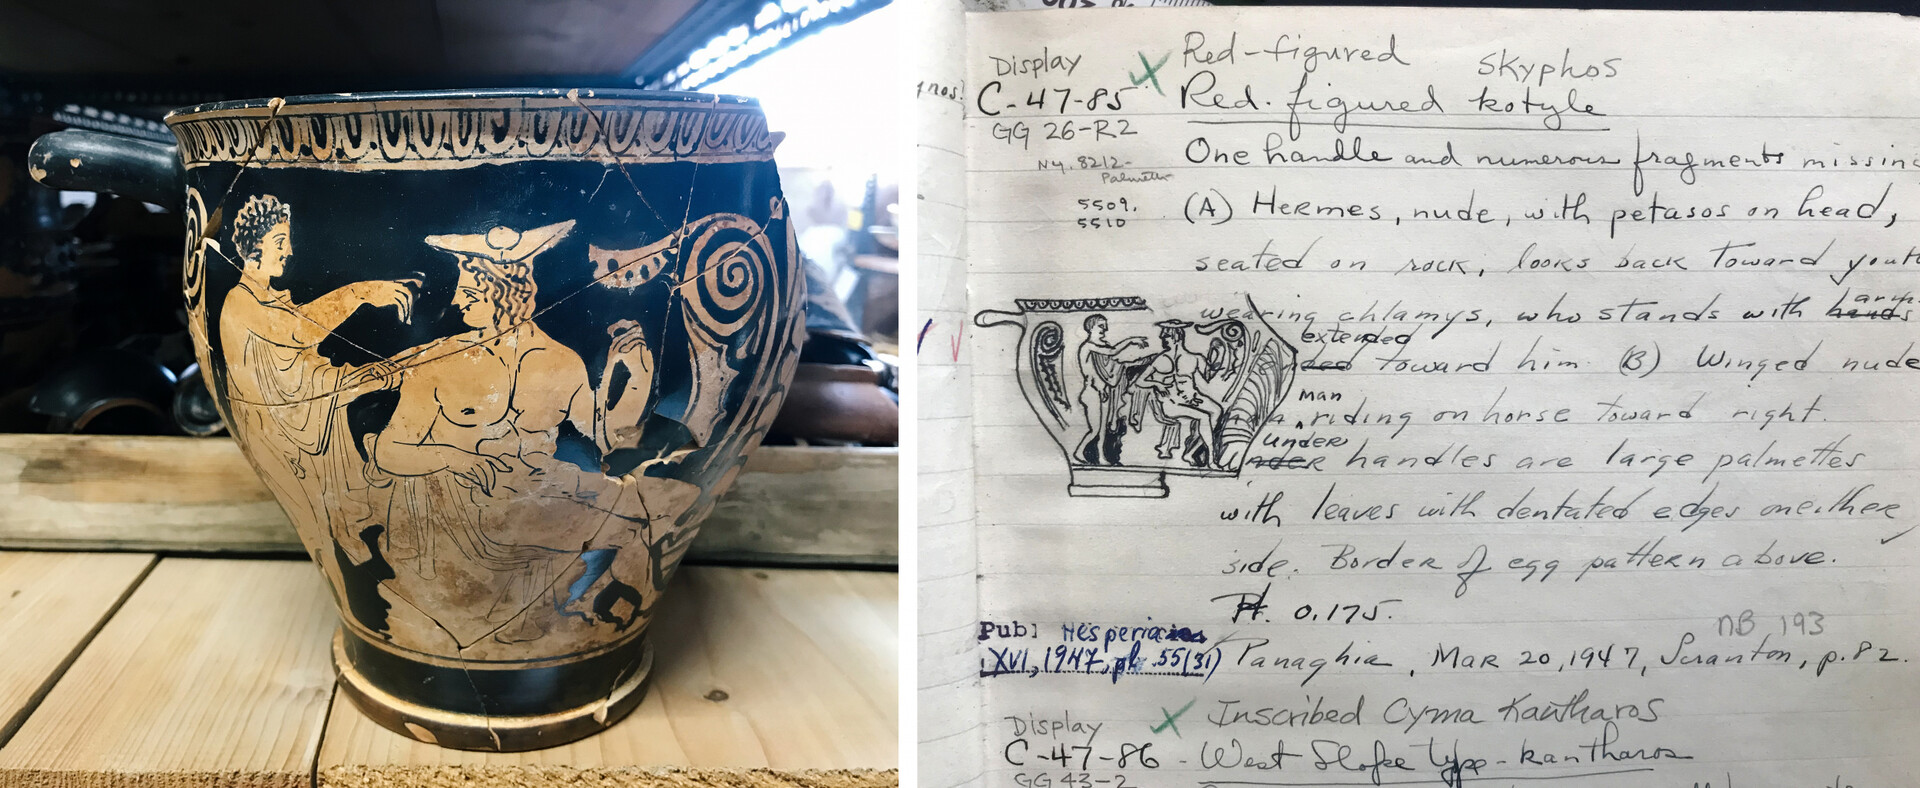 Display Red-figured Skyphos
C-47-85 Red. figured kotyle
GG 26-R2
One handle and numerous fragments missin
Ny. 8212-
Palmette
5509.
5510
(A) Hermes, nude, with petasos on head,
seated on rock, looks back toward yout
wearing chlamys, who stands with hands arms
extended
ded toward him. (B) Winged nude
man
riding on horse toward right.
under
under handles are large palmettes
with leaves with dentated edges oneither
side. Border of egg pattern above.
Ht. 0.175.
NB 193
Pub: Hesperia
XVI, 1947, pl. 55(31) Panaghia, Mar 20, 1947, Scranton, p. 82.
Display Inscribed Cyma Kantharos
C-47-86 - West Slope type - kantharos
GG 43-2